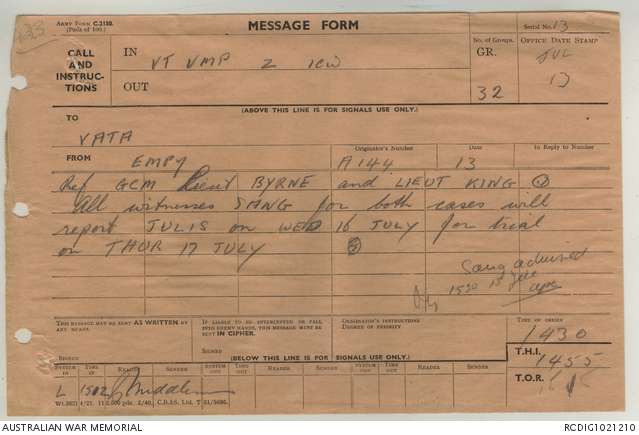 Army Form C.2130.
(Pads of 100.)
MESSAGE FORM
Serial No. 13
CALL
AND
INSTRUC-
TIONS
IN
VT VMP Z ICW
OUT
No. of Groups.
GR.
32
Office Date Stamp
JUL
13
(ABOVE THIS LINE IS FOR SIGNALS USE ONLY.)
TO
VATA
FROM
EMPY
Originator's Number
A144
Date
13
In Reply to Number
Ref GCM Lieut BYRNE and LIEUT KING
All witnesses SANG for both cases will
report JULIS on WED 16 JULY for trial
on THUR 17 JULY
Sang advised
1530 15
THIS MESSAGE MAY BE SENT AS WRITTEN BY
ANY MEANS.
SIGNED
IF LIABLE TO BE INTERCEPTED OR FALL
INTO ENEMY HANDS, THIS MESSAGE MUST BE
SENT IN CIPHER.
SIGNED
ORIGINATOR'S INSTRUCTIONS
DEGREE OF PRIORITY
TIME OF ORIGIN
1430
(BELOW THIS LINE IS FOR SIGNALS USE ONLY.)
T.H.I.
1455
T.O.R.
SYSTEM IN TIME IN READER SENDER SYSTEM OUT TIME OUT READER SENDER SYSTEM OUT TIME OUT READER SENDER
L 1502
AUSTRALIAN WAR MEMORIAL
RCDIG1021210